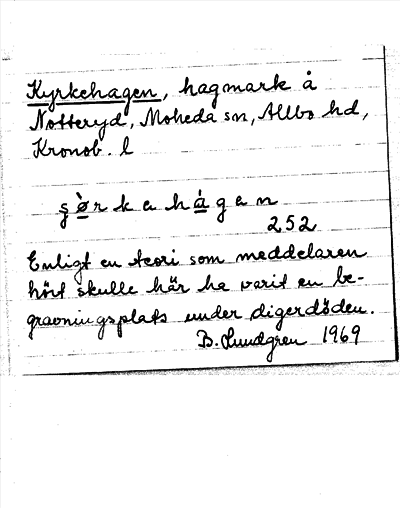 Kyrkehagen, hagmark å
Notteryd, Moheda sn, Allbo hd,
Kronob. l
şø̀rkahágan
252
Enligt en teori som meddelaren
hört skulle här ha varit en be-
gravningsplats under digerdöden.
B. Lundgren 1969